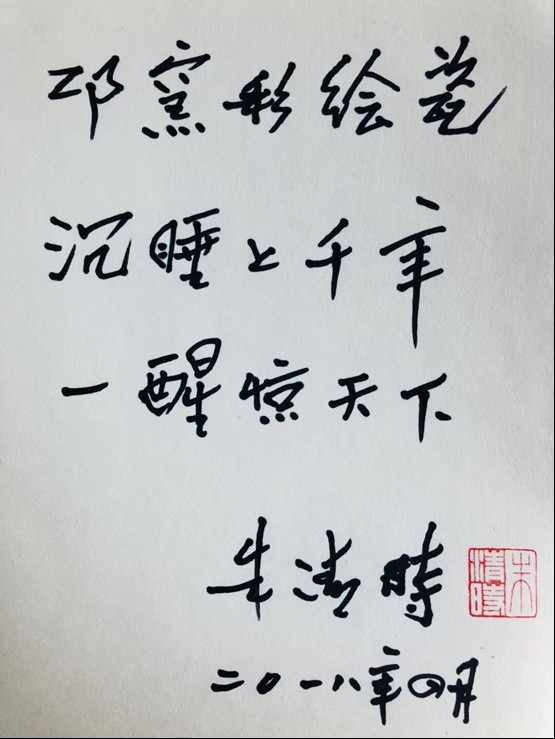 邛窑彩绘瓷
沉睡上千年
一醒惊天下
朱清時
朱清時
二〇一八年四月